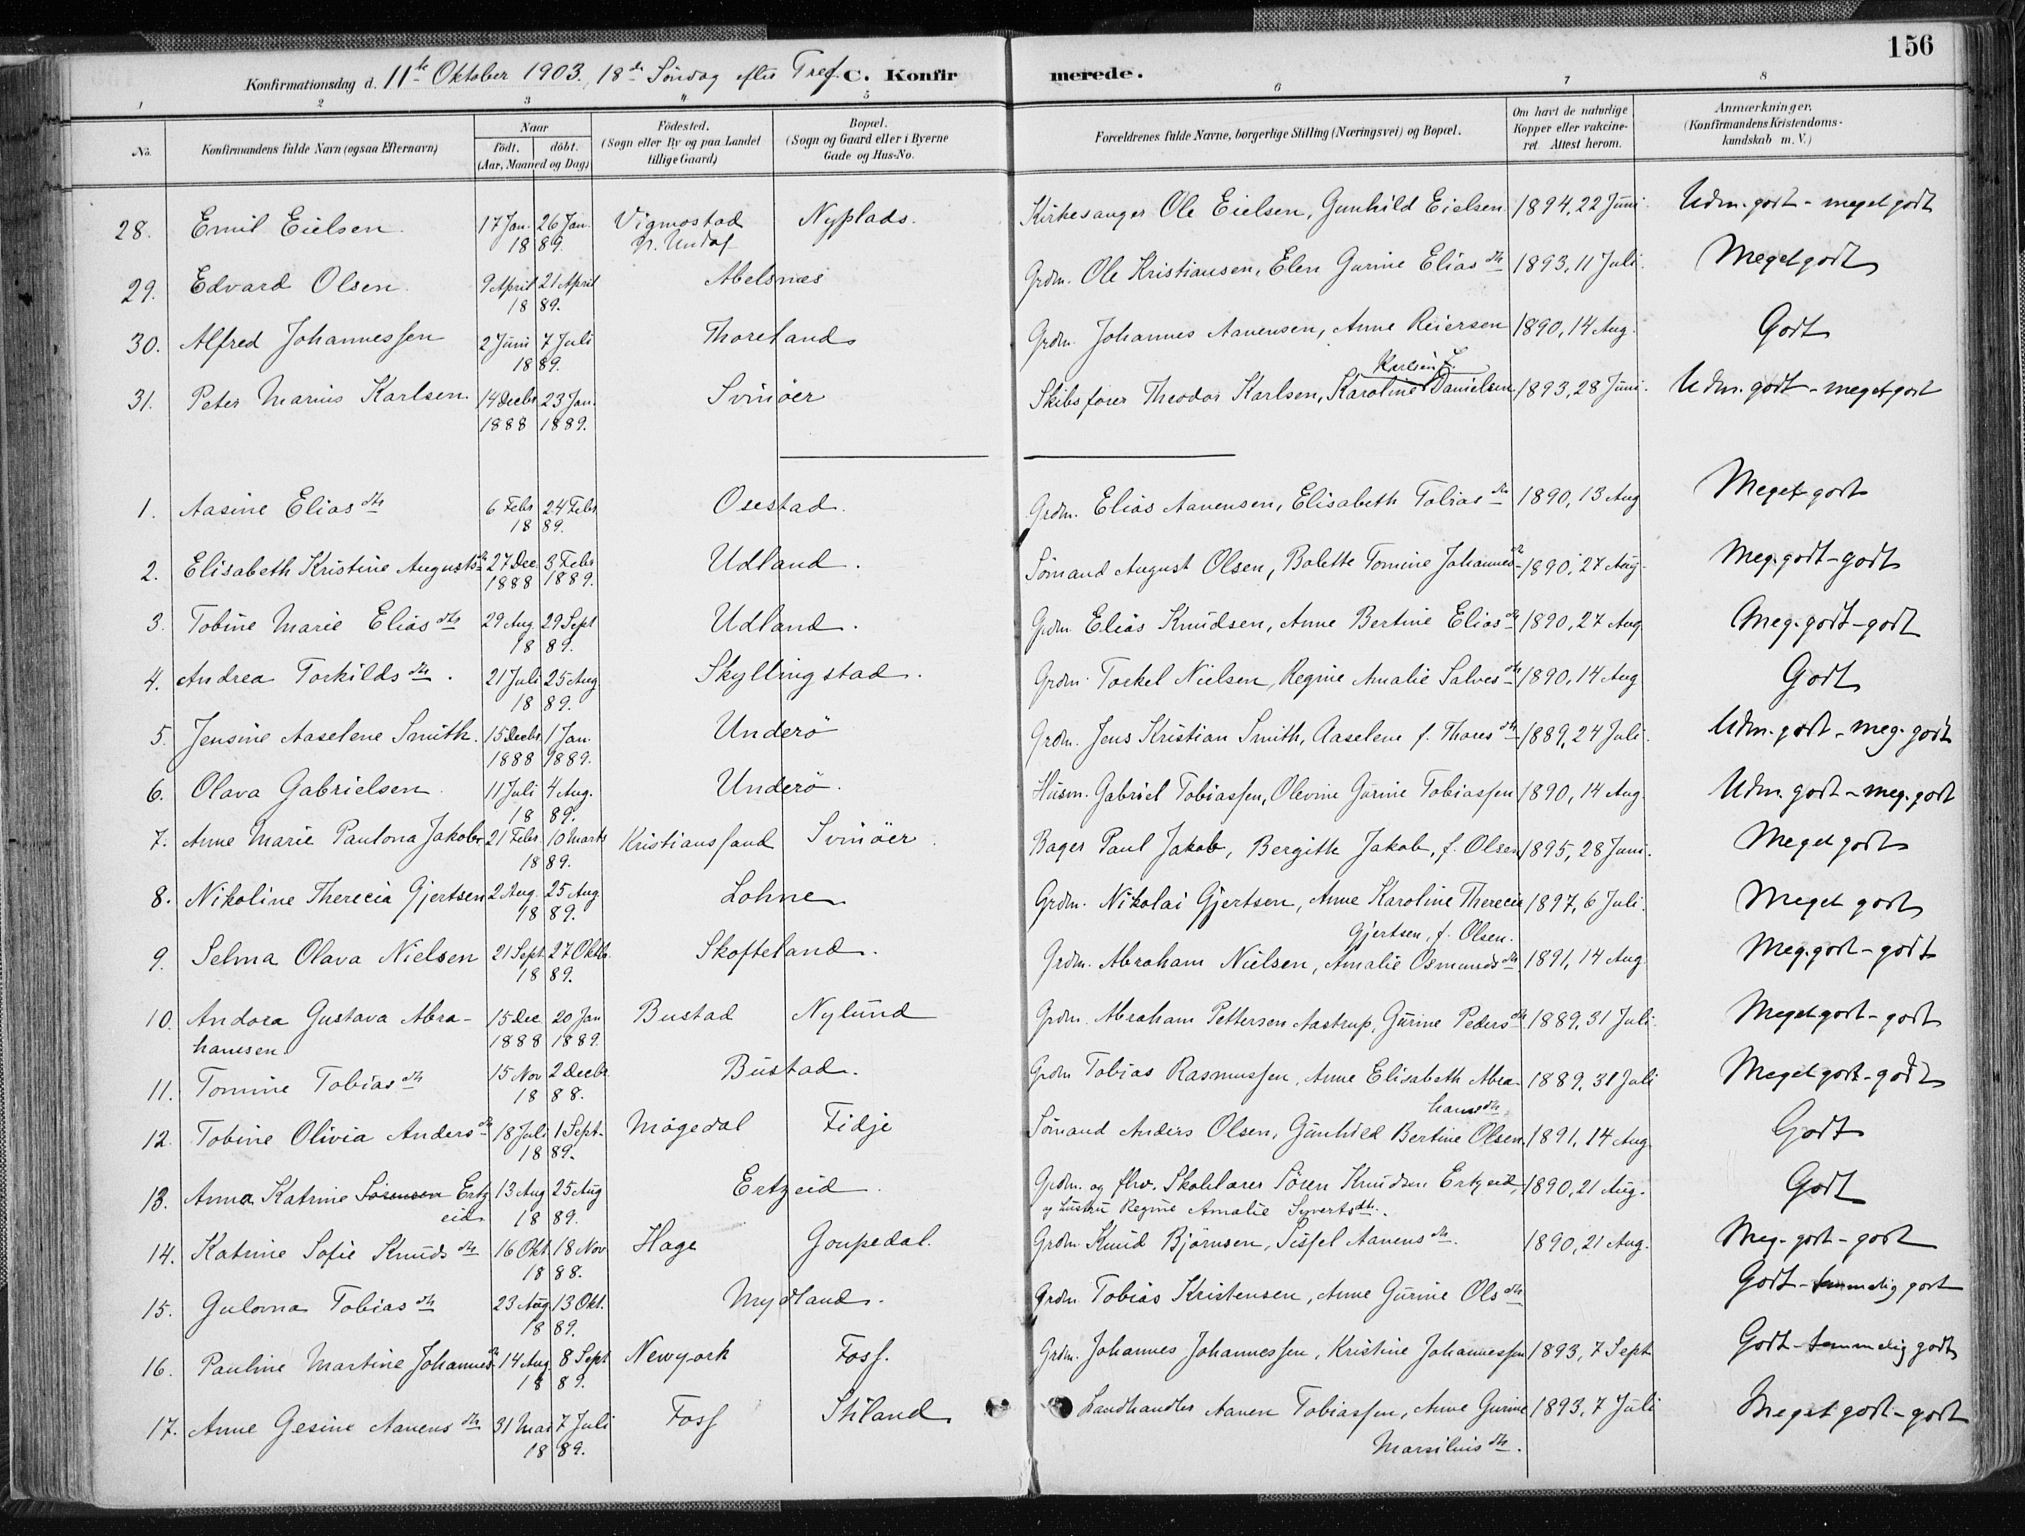 156
Konfirmationsdag d. 11te Oktober 1903, 18de Søndag efter Tref. C. Konfirmerede.
1 2 3 4 5 6 7 8
No. Konfirmandens fulde Navn (ogsaa Efternavn) Naar födt. döbt. (Aar, Maaned og Dag) Födested. (Sogn eller By og paa Landet tillige Gaard) Bopæl. (Sogn og Gaard eller i Byerne Gade og Hus-No. Forældrenes fulde Navne, borgerlige Stilling (Næringsvei) og Bopæl. Om havt de naturlige Kopper eller vakcineret. Attest herom. Anmærkninger. (Konfirmandens Kristendomskundskab m. V.)
28. Emil Eielsen 17 Jan. 26 Jan. Vigmostad Nyplads. Kirkesanger Ole Eielsen, Gunhild Eielsen 1894, 22 Juni. Udm. godt - meget godt
1889.
29. Edvard Olsen. 9 April 21 April Abelsnæs Grdm. Ole Kristiansen, Elen Gurine Elias dtr 1893, 11 Juli. Meget godt
1889.
30. Alfred Johannessen 2 Juni 7 Juli Thoreland Grdm. Johannes Aanensen, Anne Reiersen 1890, 14 Aug. Godt
1889.
Karlsen f.
31. Peter Marius Karlsen. 14 Decbr 23 Jan. Svinöer Skibsfører Theodor Karlsen, Karoline Danielsen 1893, 28 Juni. Udm. godt - meget godt
1888 1889.
1. Aasine Elias dtr 6 Febr 24 Febr Osestad. Grdm. Elias Aanensen, Elisabeth Tobias dtr 1890, 13 Aug Meget godt
1889.
2. Elisabeth Kristine Augusts dtr 27 Dec 3 Febr Udland. Sømand August Olsen, Bolette Tomine Johannes dtr 1890, 27 Aug. Meg. godt - godt
1888 1889.
3. Tobine Marie Elias dtr 29 Aug 29 Sept Udland. Grdm Elias Knudsen, Anne Bertine Elias dtr 1890, 27 Aug Meg. godt - godt
1889.
4. Andrea Torkilds dtr. 21 Juli 25 Aug Skyllingstad. Grdm. Torkel Nielsen, Regine Amalie Salves dtr 1890, 14 Aug Godt
1889.
5. Jensine Aaselene Smith. 15 Decbr 1 Jan. Underö Grdm. Jens Kristian Smith, Aaselene f. Thores dtr 1889, 24 Juli. Udm. godt - meg. godt
1888 1889.
6. Olava Gabrielsen. 11 Juli 4 Aug. Underö. Husm. Gabriel Tobiassen, Olevine Gurine Tobiassen 1890, 14 Aug. Udm. godt - meg. godt
1889.
7. Anne Marie Paulona Jakobs 21 Febr 10 Marts Kristianssand Svinöer. Bager Paul Jakob, Bergith Jakob, f. Olsen 1895, 28 Juni. Meget godt
1889.
8. Nikoline Therecia Gjertsen 2 Aug. 25 Aug Lohne Grdm. Nikolai Gjertsen, Anne Karoline Therecia 1897, 6 Juli. Meget godt
1889. Gjertsen, f. Olsen.
9. Selma Olava Nielsen 21 Sept 27 Oktb. Skofteland. Grdm. Abraham Nielsen, Amalie Osmunds dtr 1891, 14 Aug Meg. godt - godt
1889.
10. Andora Gustava Abra- 15 Dec 20 Jan Bustad Nylund Grdm. Abraham Pettersen Aastrup, Gurine Peders dtr 1889, 31 Juli. Meget godt - godt
hamsen. 1888 1889.
11. Tomine Tobias dtr 15 Nov 2 Decbr. Bustad. Grdm Tobias Rasmussen, Anne Elisabeth Abra- 1889, 31 Juli Meget godt - godt
1888. hams dtr
12. Tobine Olivia Anders dtr 18 Juli 1 Sept. Mögedal Fidje Sømand Anders Olsen, Gunhild Bertine Olsen. 1891, 14 Aug Godt
1889.
13. Anna Katrine Sörensen Ertz 13 Aug 25 Aug Ertzeid. Grdm. og fhv. Skolelærer Sören Knudsen Ertzeid, 1890, 21 Aug. Godt
eid 1889. og Hustru Regine Amalie Syverts dtr.
14. Katrine Sofie Knuds dtr 16 Okt 18 Nov Hage Goupedal. Grdm. Knud Bjørnsen, Sissel Aanens dtr. 1890, 21 Aug. Meg. godt - godt
1888.
15. Gulovna Tobias dtr 23 Aug 13 Okt. Mydland. Grdm. Tobias Kristensen, Anne Gurine Ols dtr Godt - temmelig godt
1889.
16. Pauline Martine Johannes dtr 14 Aug 8 Sept Newyork Foss. Grdm. Johannes Johannessen, Kristine Johannessen 1893, 7 Sept Godt - temmelig godt
1889.
17. Anne Gesine Aanens dtr 31 Mai 7 Juli Foss Stiland Landhandler Aanen Tobiassen, Anne Gurine 1893, 7 Juli Meget godt - godt
1889. Marsilius dtr.